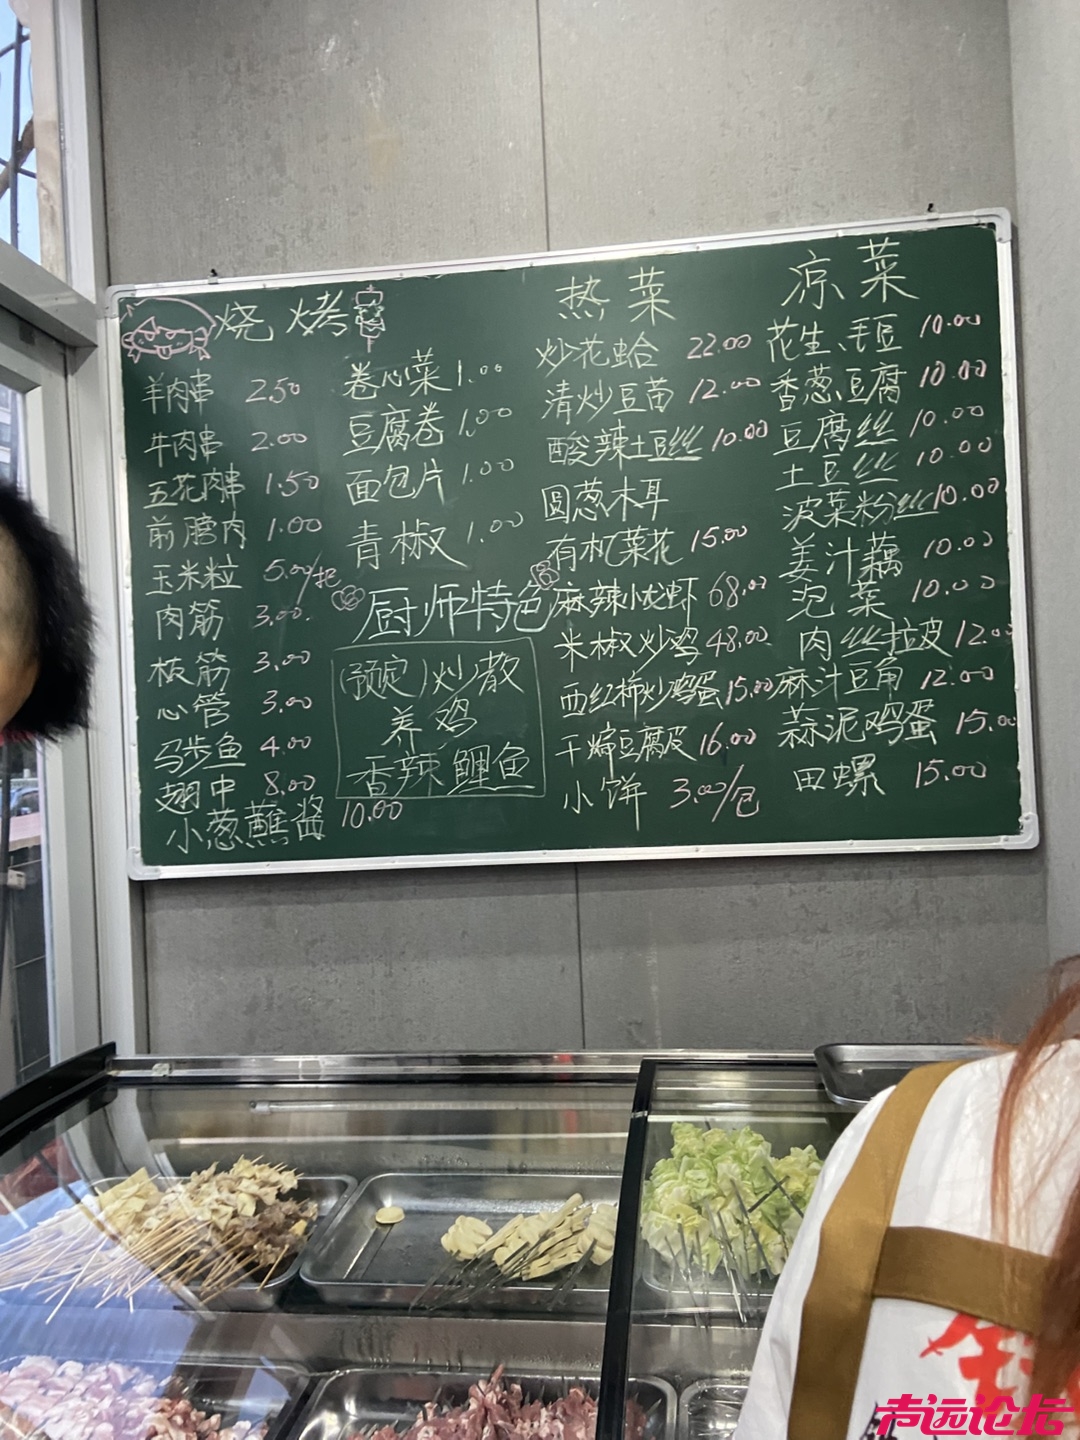 烧 烤
羊肉串 2.50
牛肉串 2.00
五花肉串 1.50
前膀肉 1.00
玉米粒 5.00/把
肉筋 3.00
板筋 3.00
心管 3.00
马步鱼 4.00
翅中 8.00
小葱蘸酱 10.00
卷心菜 1.00
豆腐卷 1.00
面包片 1.00
青椒 1.00
厨师特色
(预定)炒散
养鸡
香辣鲤鱼
热菜
炒花蛤 22.00
清炒豆苗 12.00
酸辣土豆丝 10.00
圆葱木耳
有机菜花 15.00
麻辣小龙虾 68.00
米椒炒鸡 48.00
西红柿炒鸡蛋 15.00
干煸豆腐皮 16.00
小饼 3.00/包
凉菜
花生、毛豆 10.00
香葱豆腐 10.00
豆腐丝 10.00
土豆丝 10.00
波菜粉丝 10.00
姜汁藕 10.00
泡菜 10.00
肉丝拉皮 12.00
麻汁豆角 12.00
蒜泥鸡蛋 15.00
田螺 15.00
声远论坛